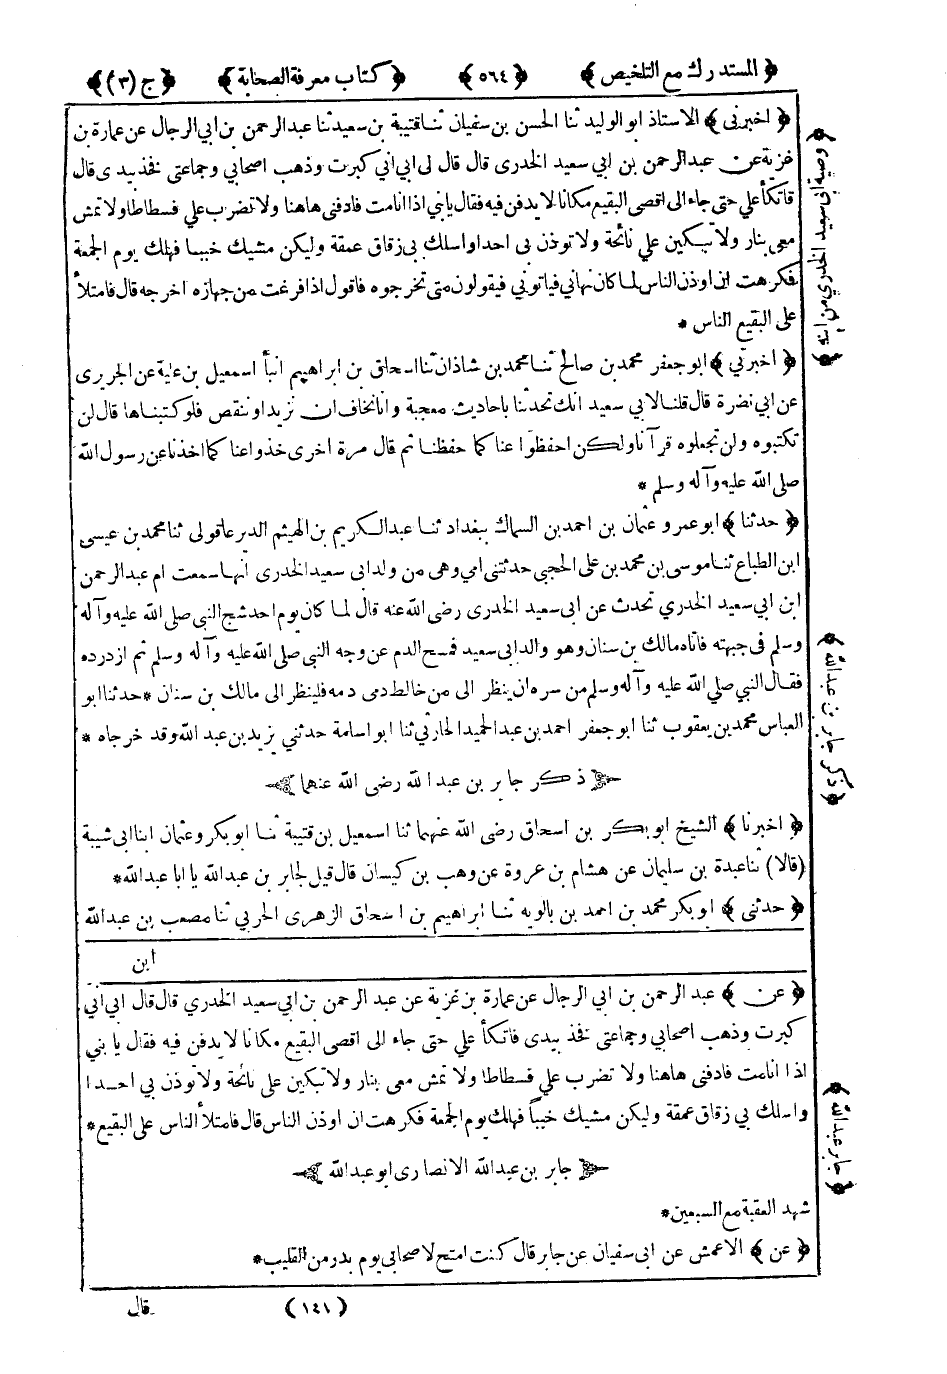 ﴿ المستدرك مع التلخيص ﴾ ﴿ ٥٦٤ ﴾ ﴿ كتاب معرفة الصحابة ﴾ ﴿ ج (٣) ﴾
﴿ اخبرنى ﴾ الاستاذ ابو الوليد ثنا الحسن بن سفيان ثنا قتيبة بن سعيد ثنا عبد الرحمن بن ابي الرجال عن عمارة بن
غزية عن عبد الرحمن بن ابي سعيد الخدرى قال قال لى ابي اني كبرت وذهب اصحابي وجماعتى فخذ بيدى قال
فاتكأ علي حتى جاء الى اقصى البقيع مكانا لا يدفن فيه فقال يابني اذا انامت فادفنى هاهنا ولا تضرب علي فسطاطا ولا تمش
معى بنار ولا تبكين علي نائحة ولا توذن بى احدا واسلك بى زقاق عمقة وليكن مشيك خببا فهلك يوم الجمعة
فكرهت ان اوذن الناس لما كان نهاني فياتوني فيقولون متى تخرجوه فاقول اذا فرغت من جهازه اخرجه قال فامتلأ
على البقيع الناس *
﴿ اخبرني ﴾ ابو جعفر محمد بن صالح ثنا محمد بن شاذان ثنا اسحاق بن ابراهيم انبأ اسمعيل بن علية عن الجريرى
عن ابي نضرة قال قلنا لابي سعيد انك تحدثنا باحاديث معجبة وانا نخاف ان نزيد او ننقص فلو كتبناها قال لن
تكتبوه ولن تجعلوه قرآنا ولكن احفظوا عنا كما حفظنا ثم قال مرة اخرى خذوا عنا كما اخذنا عن رسول الله
صلى الله عليه وآله وسلم *
﴿ حدثنا ﴾ ابو عمرو عثمان بن احمد بن السماك ببغداد ثنا عبد الكريم بن الهيثم الدير عاقولى ثنا محمد بن عيسى
ابن الطباع ثنا موسى بن محمد بن على الحجبى حدثتنى امي وهى من ولد ابى سعيد الخدرى انها سمعت ام عبد الرحمن
ابن ابي سعيد الخدري تحدث عن ابى سعيد الخدرى رضى الله عنه قال لما كان يوم احد شج النبي صلى الله عليه وآله
وسلم فى جبهته فاتاه مالك بن سنان وهو والد ابى سعيد فمسح الدم عن وجه النبي صلى الله عليه وآله وسلم ثم ازدرده
فقال النبي صلى الله عليه وآله وسلم من سره ان ينظر الى من خالط دمى دمه فلينظر الى مالك بن سنان * حدثنا ابو
العباس محمد بن يعقوب ثنا ابو جعفر احمد بن عبد الحميد الحارثي ثنا ابو اسامة حدثني يزيد بن عبد الله وقد خرجاه *
ذكر جابر بن عبد الله رضى الله عنهما
﴿ اخبرنا ﴾ الشيخ ابو بكر بن اسحاق رضى الله عنهما ثنا اسمعيل بن قتيبة ثنا ابو بكر وعثمان ابنا ابى شيبة
(قالا) ثنا عبدة بن سليمان عن هشام بن عروة عن وهب بن كيسان قال قيل لجابر بن عبد الله يا ابا عبد الله *
﴿ حدثنى ﴾ ابو بكر محمد بن احمد بن بالويه ثنا ابراهيم بن اسحاق الزهرى الحربي ثنا مصعب بن عبد الله
ابن
﴿ عن ﴾ عبد الرحمن بن ابي الرجال عن عمارة بن غزية عن عبد الرحمن بن ابي سعيد الخدري قال قال ابي اني
كبرت وذهب اصحابي وجماعتى فخذ بيدى فاتكأ علي حتى جاء الى اقصى البقيع مكانا لا يدفن فيه فقال يا بني
اذا انامت فادفنى هاهنا ولا تضرب علي فسطاطا ولا تمش معى بنار ولا تبكين على نائحة ولا توذن بي احدا
واسلك بي زقاق عمقة وليكن مشيك خبباً فهلك يوم الجمعة فكرهت ان اوذن الناس قال فامتلأ الناس على البقيع *
جابر بن عبد الله الانصارى ابو عبد الله
شهد العقبة مع السبعين *
﴿ عن ﴾ الاعمش عن ابى سفيان عن جابر قال كنت امتح لاصحابي يوم بدر من القليب *
(١٤١) قال
﴿ وصية ابى سعيد الخدري من ابنه ﴾
﴿ ذكر جابر بن عبد الله ﴾
﴿ جابر عبد الله ﴾